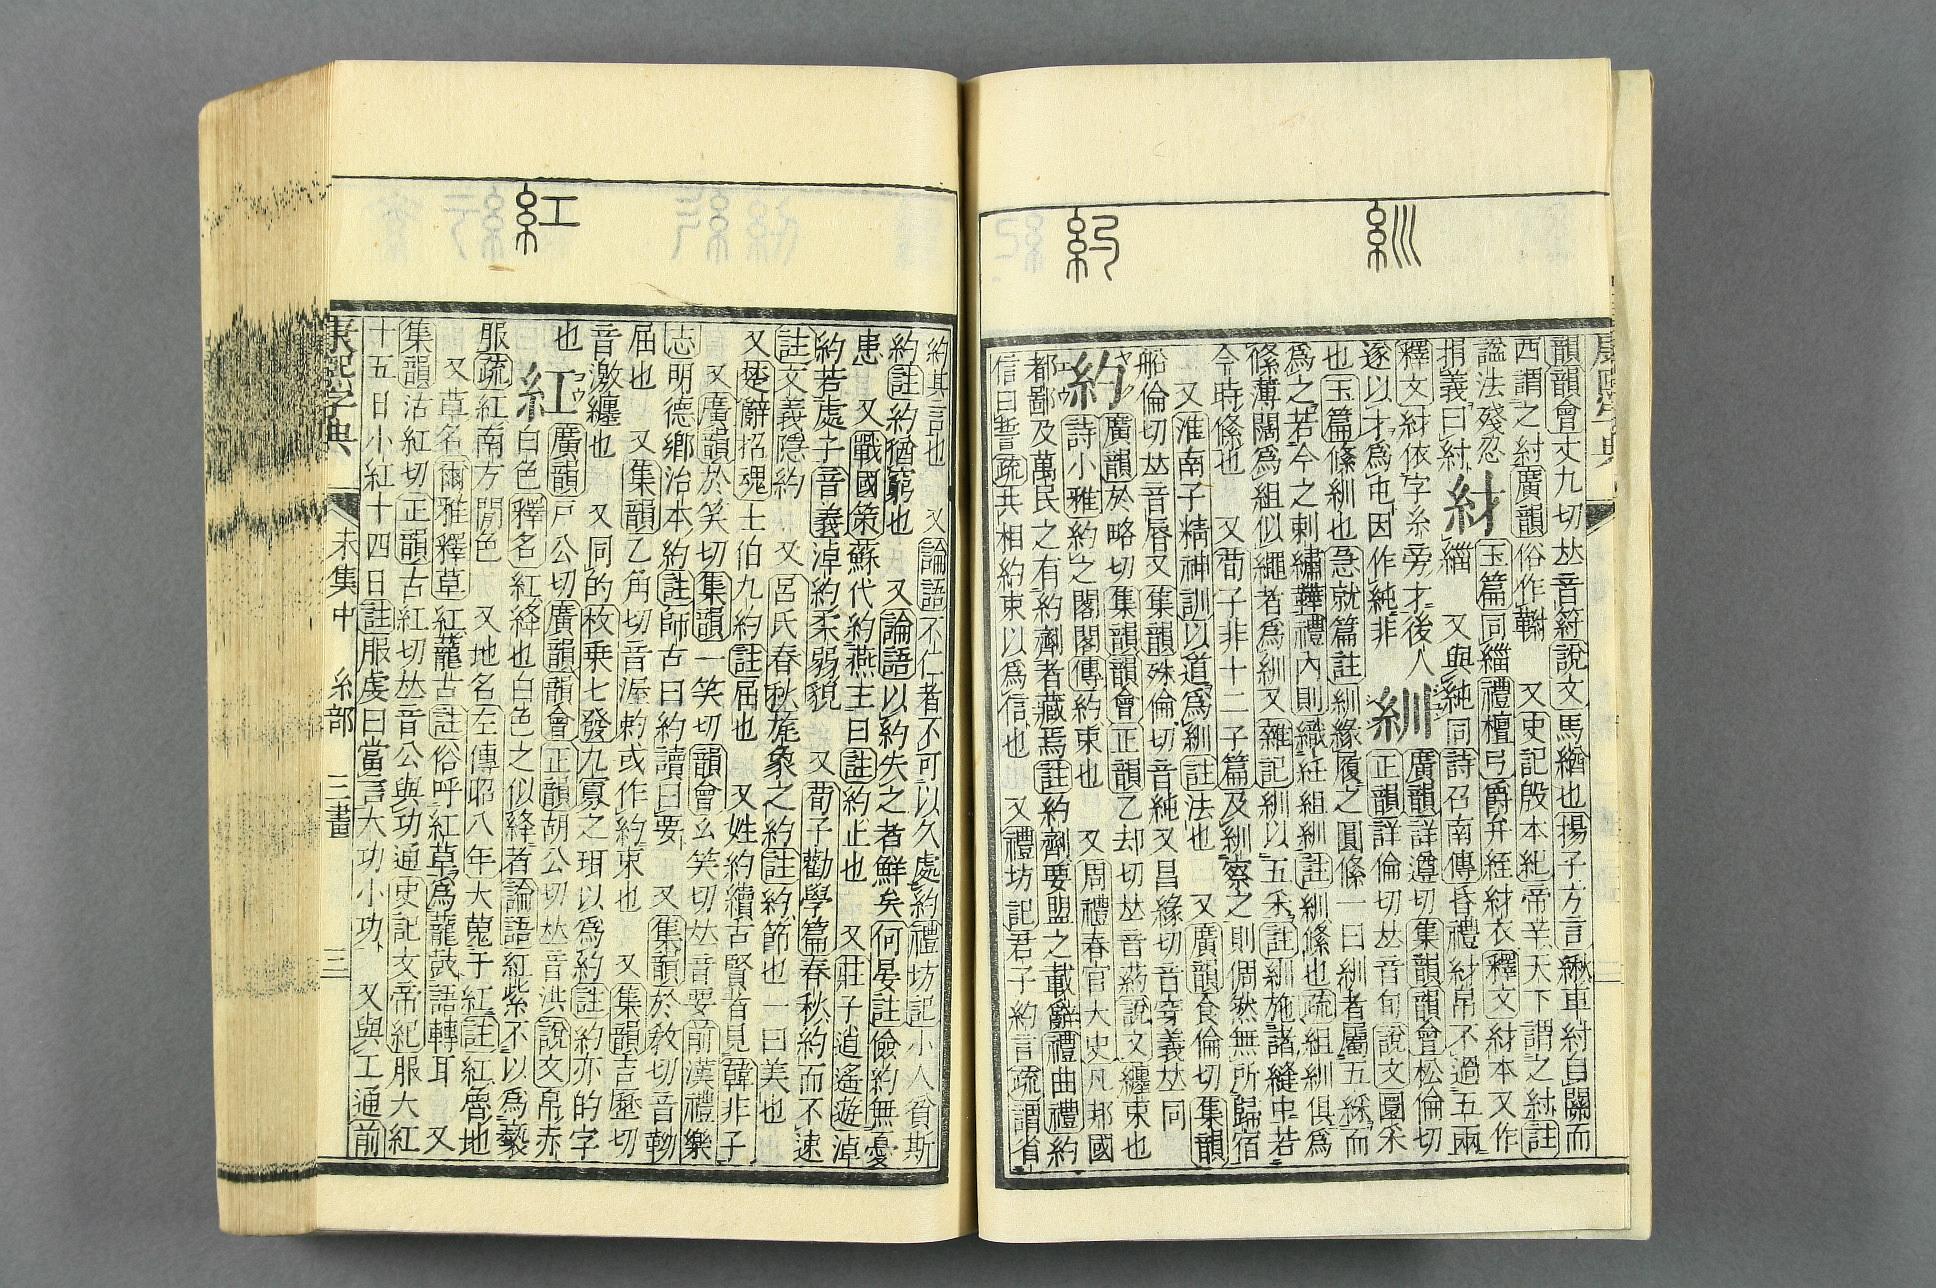 紃
約
康熙字典
韻韻會丈九切𠀤音紂說文馬緧也揚子方言緧車紂自關而
西謂之紂廣韻俗作䩜 又史記殷本紀帝辛天下謂之紂註
諡法殘忍
捐義曰紂
䊷
玉篇同緇禮檀弓爵弁絰䊷衣釋文䊷本又作
緇 又與純同詩召南傳昏禮䊷帛不過五兩
釋文䊷依字糸旁才後人
遂以才爲屯因作純非
紃
廣韻詳遵切集韻韻會松倫切
正韻詳倫切𠀤音旬說文圜采
也玉篇絛紃也急就篇註紃緣履之圓絛一曰紃者屬五綵而
爲之若今之刺繡韡禮內則織紝組紃註紃絛也疏組紃俱爲
絛薄闊爲組似繩者爲紃又雜記紃以五采註紃施諸縫中若
今時絛也 又荀子非十二子篇及紃察之則倜然無所歸宿
又淮南子精神訓以道爲紃註法也 又廣韻食倫切集韻
船倫切𠀤音脣又集韻殊倫切音純又昌緣切音穿義𠀤同
約
ヤク
エウ
廣韻於略切集韻韻會正韻乙却切𠀤音葯說文纏束也
詩小雅約之閣閣傳約束也 又周禮春官大史凡邦國
都鄙及萬民之有約劑者藏焉註約劑要盟之載辭禮曲禮約
信曰誓疏共相約束以爲信也 又禮坊記君子約言疏謂省
紅
約其言也 又論語不仁者不可以久處約禮坊記小人貧斯
約註約猶窮也 又論語以約失之者鮮矣何晏註儉約無憂
患 又戰國策蘇代約燕王曰註約止也 又莊子逍遙遊淖
約若處子音義淖約柔弱貌 又荀子勸學篇春秋約而不速
註文義隱約 又呂氏春秋旄象之約註約節也一曰美也
又楚辭招魂土伯九約註屈也 又姓約續古賢者見韓非子
又廣韻於笑切集韻一笑切韻會幺笑切𠀤音要前漢禮樂
志明德鄉治本約註師古曰約讀曰要 又集韻於敎切音靿
屈也 又集韻乙角切音渥𠡠或作約束也 又集韻吉歷切
音激纏也 又同的枚乗七發九寡之珥以爲約註約亦的字
也
紅
コウ
廣韻戸公切廣韻韻會正韻胡公切𠀤音洪說文帛赤
白色釋名紅絳也白色之似絳者論語紅紫不以爲褻
服疏紅南方閒色 又地名左傳昭八年大蒐于紅註紅魯地
又草名爾雅釋草紅蘢古註俗呼紅草爲蘢鼓語轉耳 又
集韻沽紅切正韻古紅切𠀤音公與功通史記文帝紀服大紅
十五日小紅十四日註服虔曰當言大功小功 又與工通前
康熙字典
未集中 糸部 三畫
三